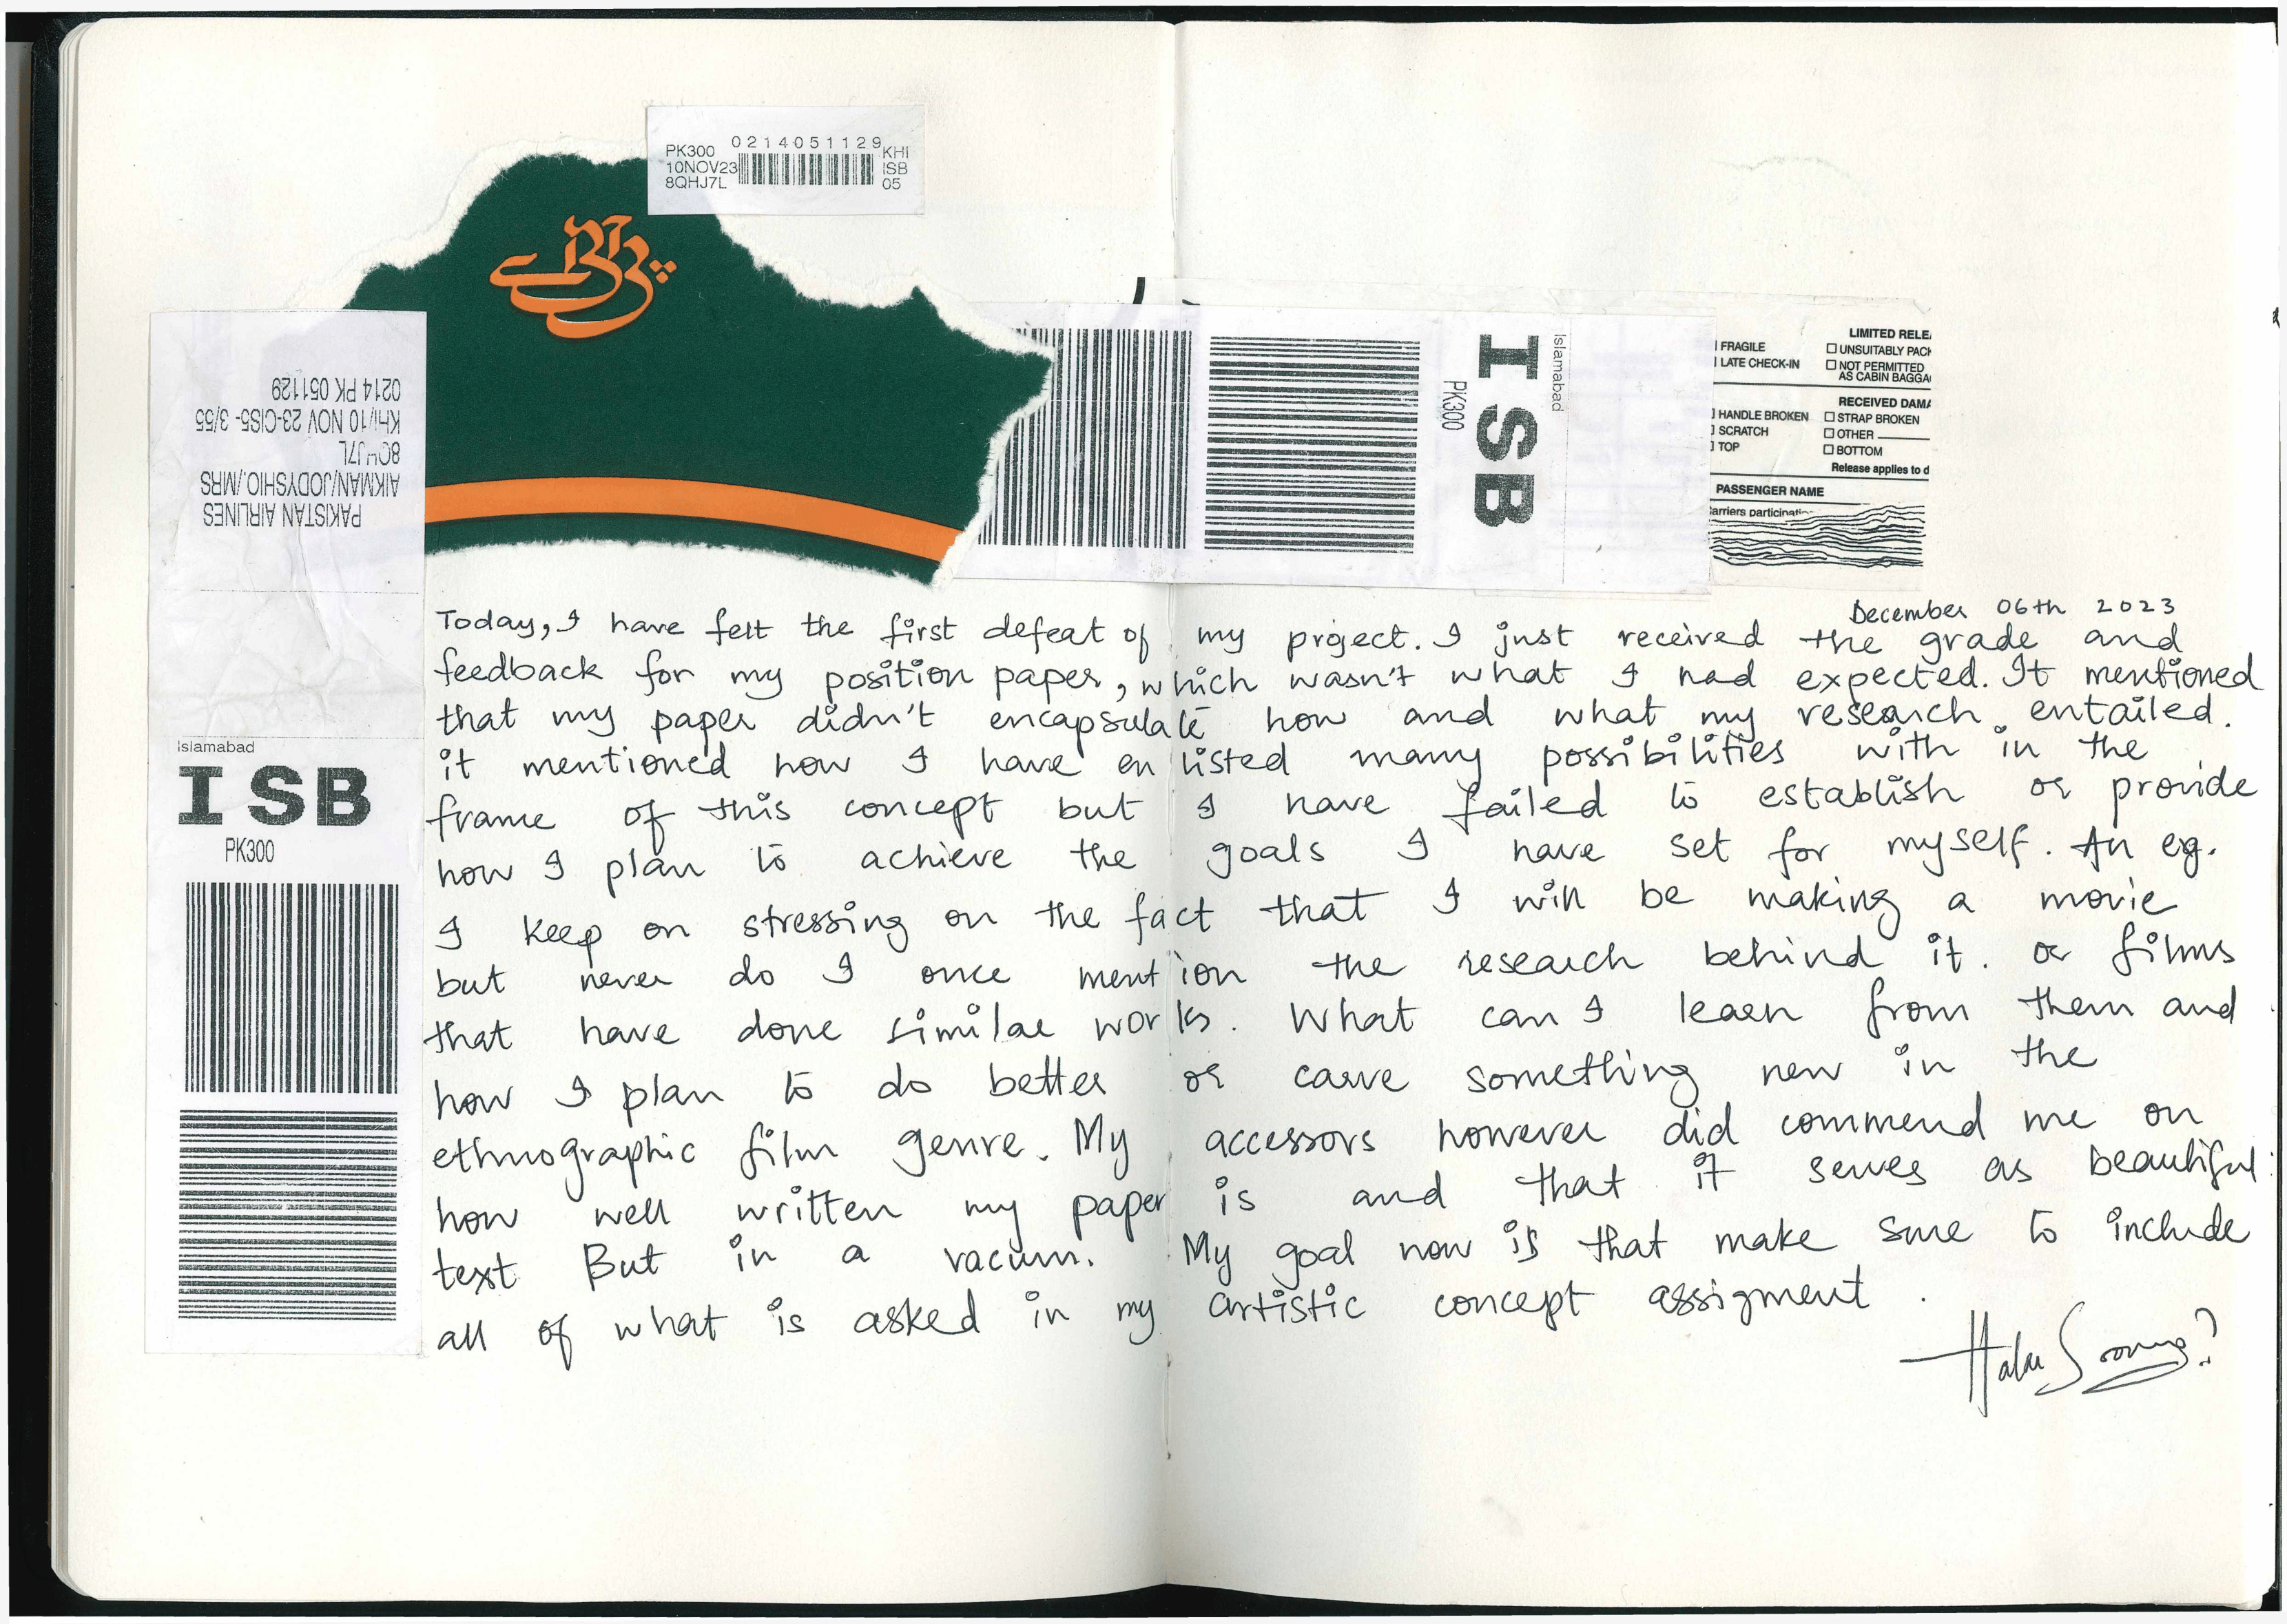 0214051129
PK300 KHI
10NOV23 ISB
8QHJ7L 05
PAKISTAN AIRLINES
AIKMAN/JODYSHIO./MRS
KHI/10 NOV 23-CIS5- 3/55
0214 PK 051129
Islamabad
ISB
PK300
Islamabad
ISB
PK300
LIMITED RELEA
FRAGILE UNSUITABLY PACK
LATE CHECK-IN NOT PERMITTED
AS CABIN BAGGA
RECEIVED DAMA
HANDLE BROKEN STRAP BROKEN
SCRATCH OTHER
TOP BOTTOM
Release applies to d
PASSENGER NAME
arriers participatin
December 06th 2023
Today, I have felt the first defeat of my project. I just received the grade and
feedback for my position paper, which wasn't what I had expected. It mentioned
that my paper didn't encapsulate how and what my research entailed.
it mentioned how I have enlisted many possibilities with in the
frame of this concept but I have failed to establish or provide
how I plan to achieve the goals I have set for myself. An eg.
I keep on stressing on the fact that I will be making a movie
but never do I once mention the research behind it. or films
that have done similar works. What can I learn from them and
how I plan to do better or carve something new in the
ethnographic film genre. My accessors however did commend me on
how well written my paper is and that it serves as beautiful
text But in a vacum. My goal now is that make sure to include
all of what is asked in my artistic concept assigment.